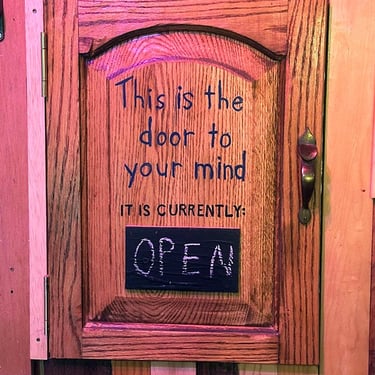 This is the
door to
your mind
IT IS CURRENTLY:
OPEN